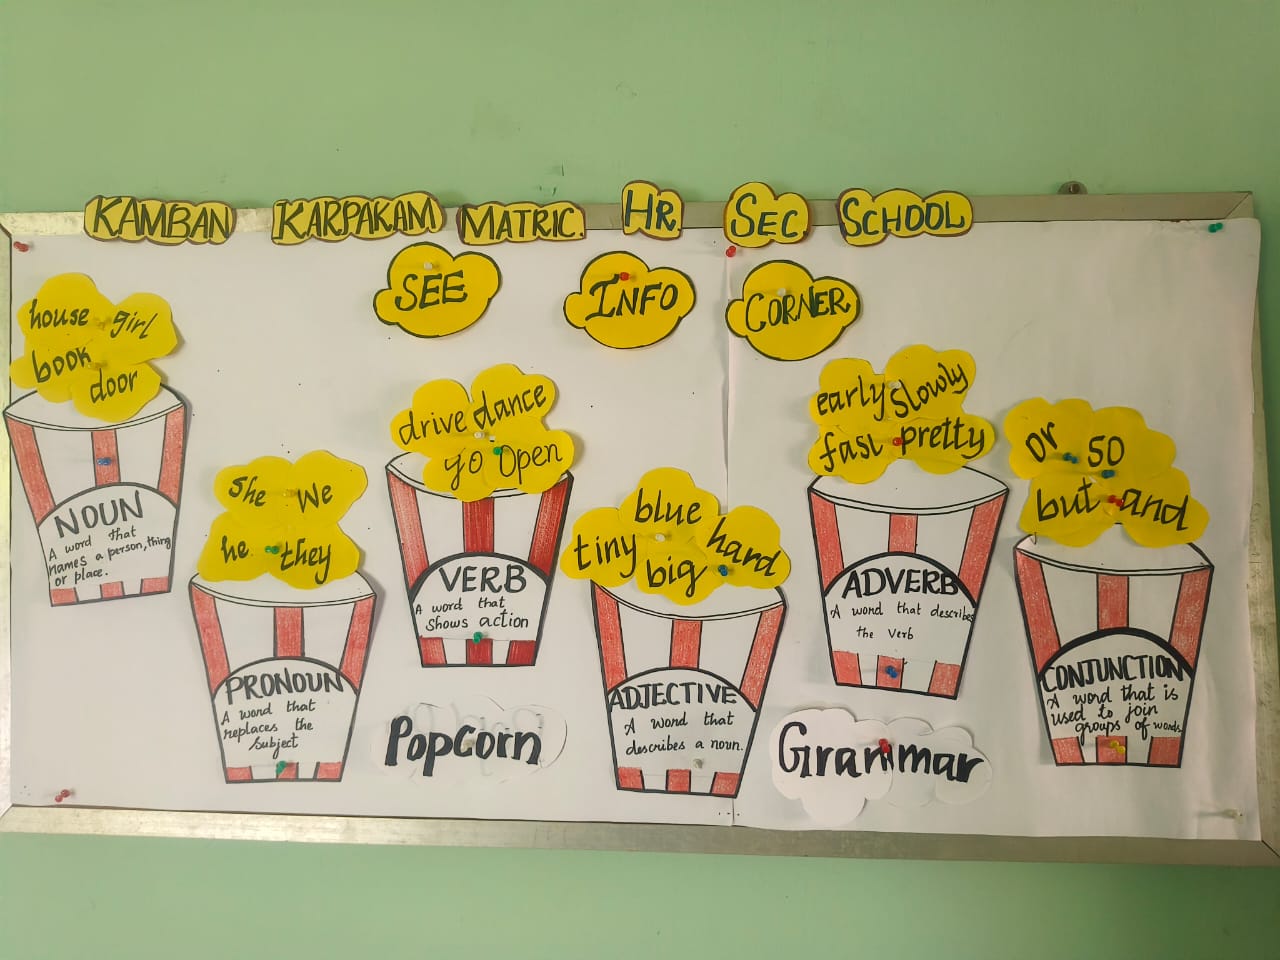 KAMBAN KARPAKAM MATRIC. HR. SEC. SCHOOL
SEE INFO CORNER
house girl
book
door
NOUN
A word that
names a person, thing
or place.
she we
he they
PRONOUN
A word that
replaces the
subject
drive dance
go open
VERB
A word that
shows action
blue
tiny hard
big
ADJECTIVE
A word that
describes a noun.
early slowly
fast pretty
ADVERB
A word that describes
the verb
or so
but and
CONJUNCTION
A word that is
used to join
groups of words.
Popcorn Grammar